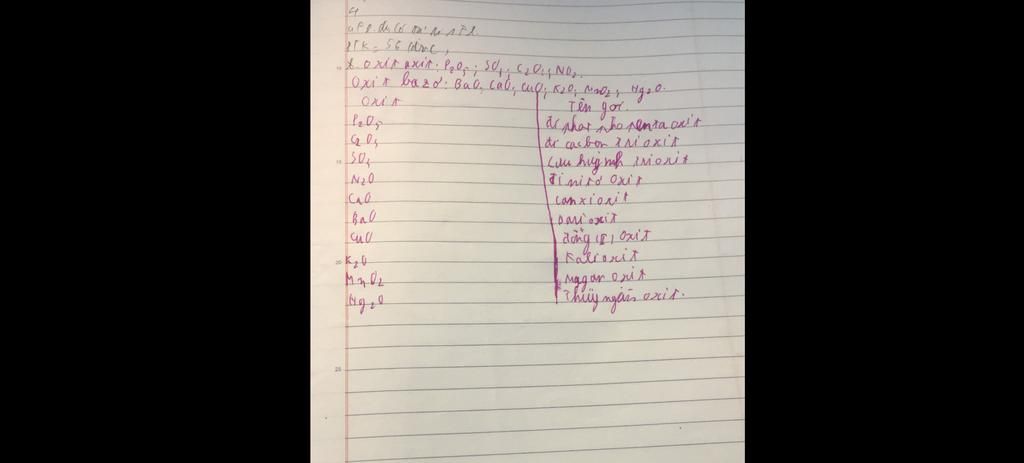 4
PTK = 56 đvC,
2. Oxit axit: P₂O₅; SO₃; C₂O₃; NO₂.
Oxit bazơ: BaO, CaO, CuO, K₂O, MnO₂, Hg₂O.
Oxit Tên gọi.
P₂O₅ đi phot pho penta oxit
C₂O₃ đi cacbon tri oxit
SO₃ Lưu huỳnh trioxit
N₂O đi nitơ oxit
CaO canxi oxit
BaO bari oxit
CuO đồng (II) oxit
K₂O Kali oxit
MnO₂ Magan oxit
Hg₂O Thủy ngân oxit.
20
25